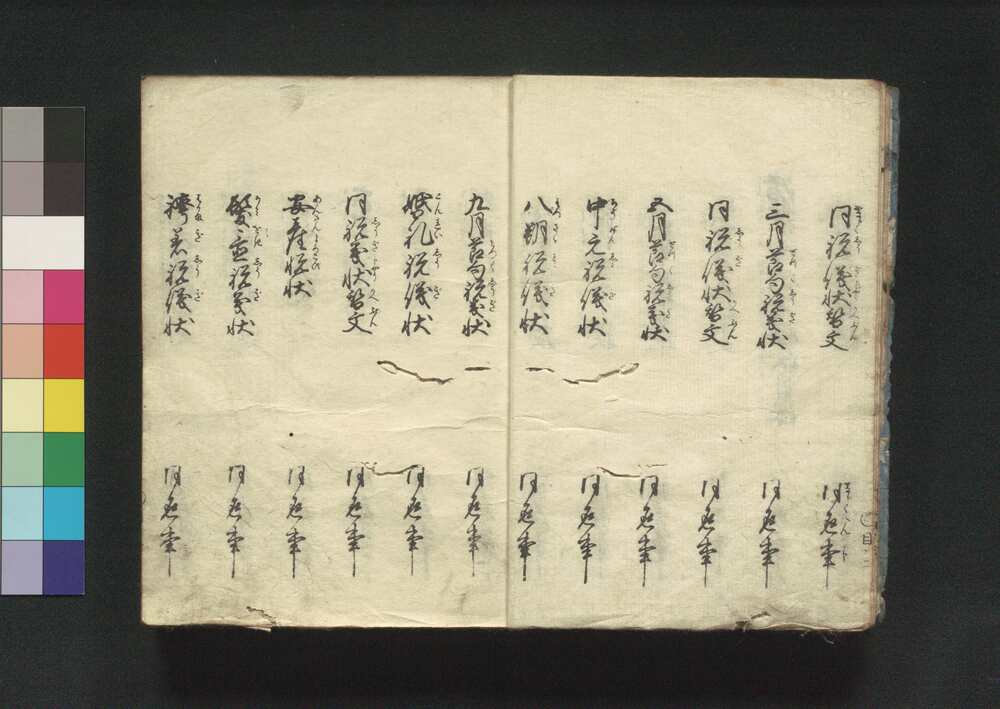 同祝儀状替文
同返事
三月節句祝儀状
同返事
同祝儀状替文
同返事
五月節句祝儀状
同返事
中元祝儀状
同返事
八朔祝儀状
同返事
九月節句祝儀状
同返事
婚礼祝儀状
同返事
同祝儀状替文
同返事
安産悦状
同返事
髪置祝儀状
同返事
袴着祝儀状
同返事
目二